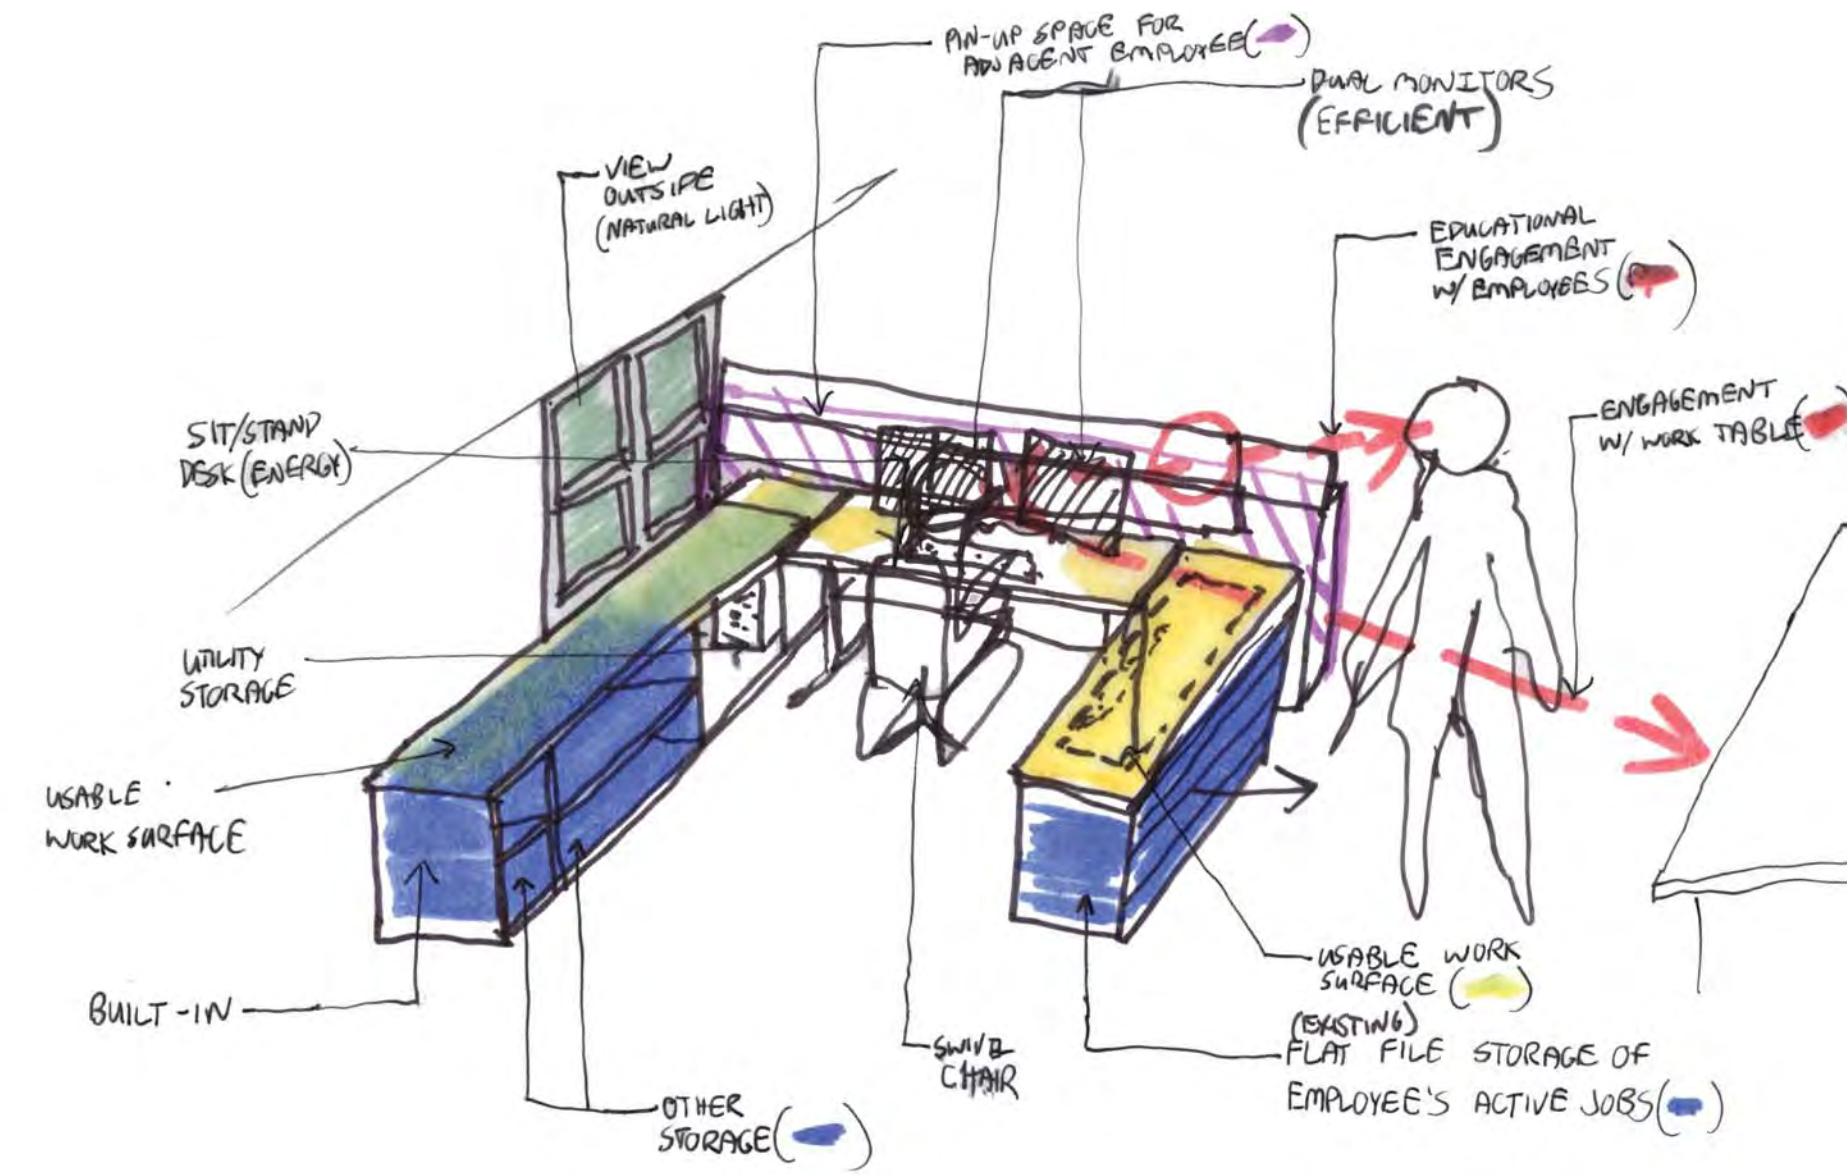 PIN-UP SPACE FOR
ADJACENT EMPLOYEE ( )
DUAL MONITORS
(EFFICIENT)
VIEW
OUTSIDE
(NATURAL LIGHT)
EDUCATIONAL
ENGAGEMENT
W/ EMPLOYEES ( )
ENGAGEMENT
W/ WORK TABLE ( )
SIT/STAND
DESK (ENERGY)
UTILITY
STORAGE
USABLE
WORK SURFACE
BUILT-IN
OTHER
STORAGE ( )
SWIVEL
CHAIR
USABLE WORK
SURFACE ( )
(EXISTING)
FLAT FILE STORAGE OF
EMPLOYEE'S ACTIVE JOBS ( )